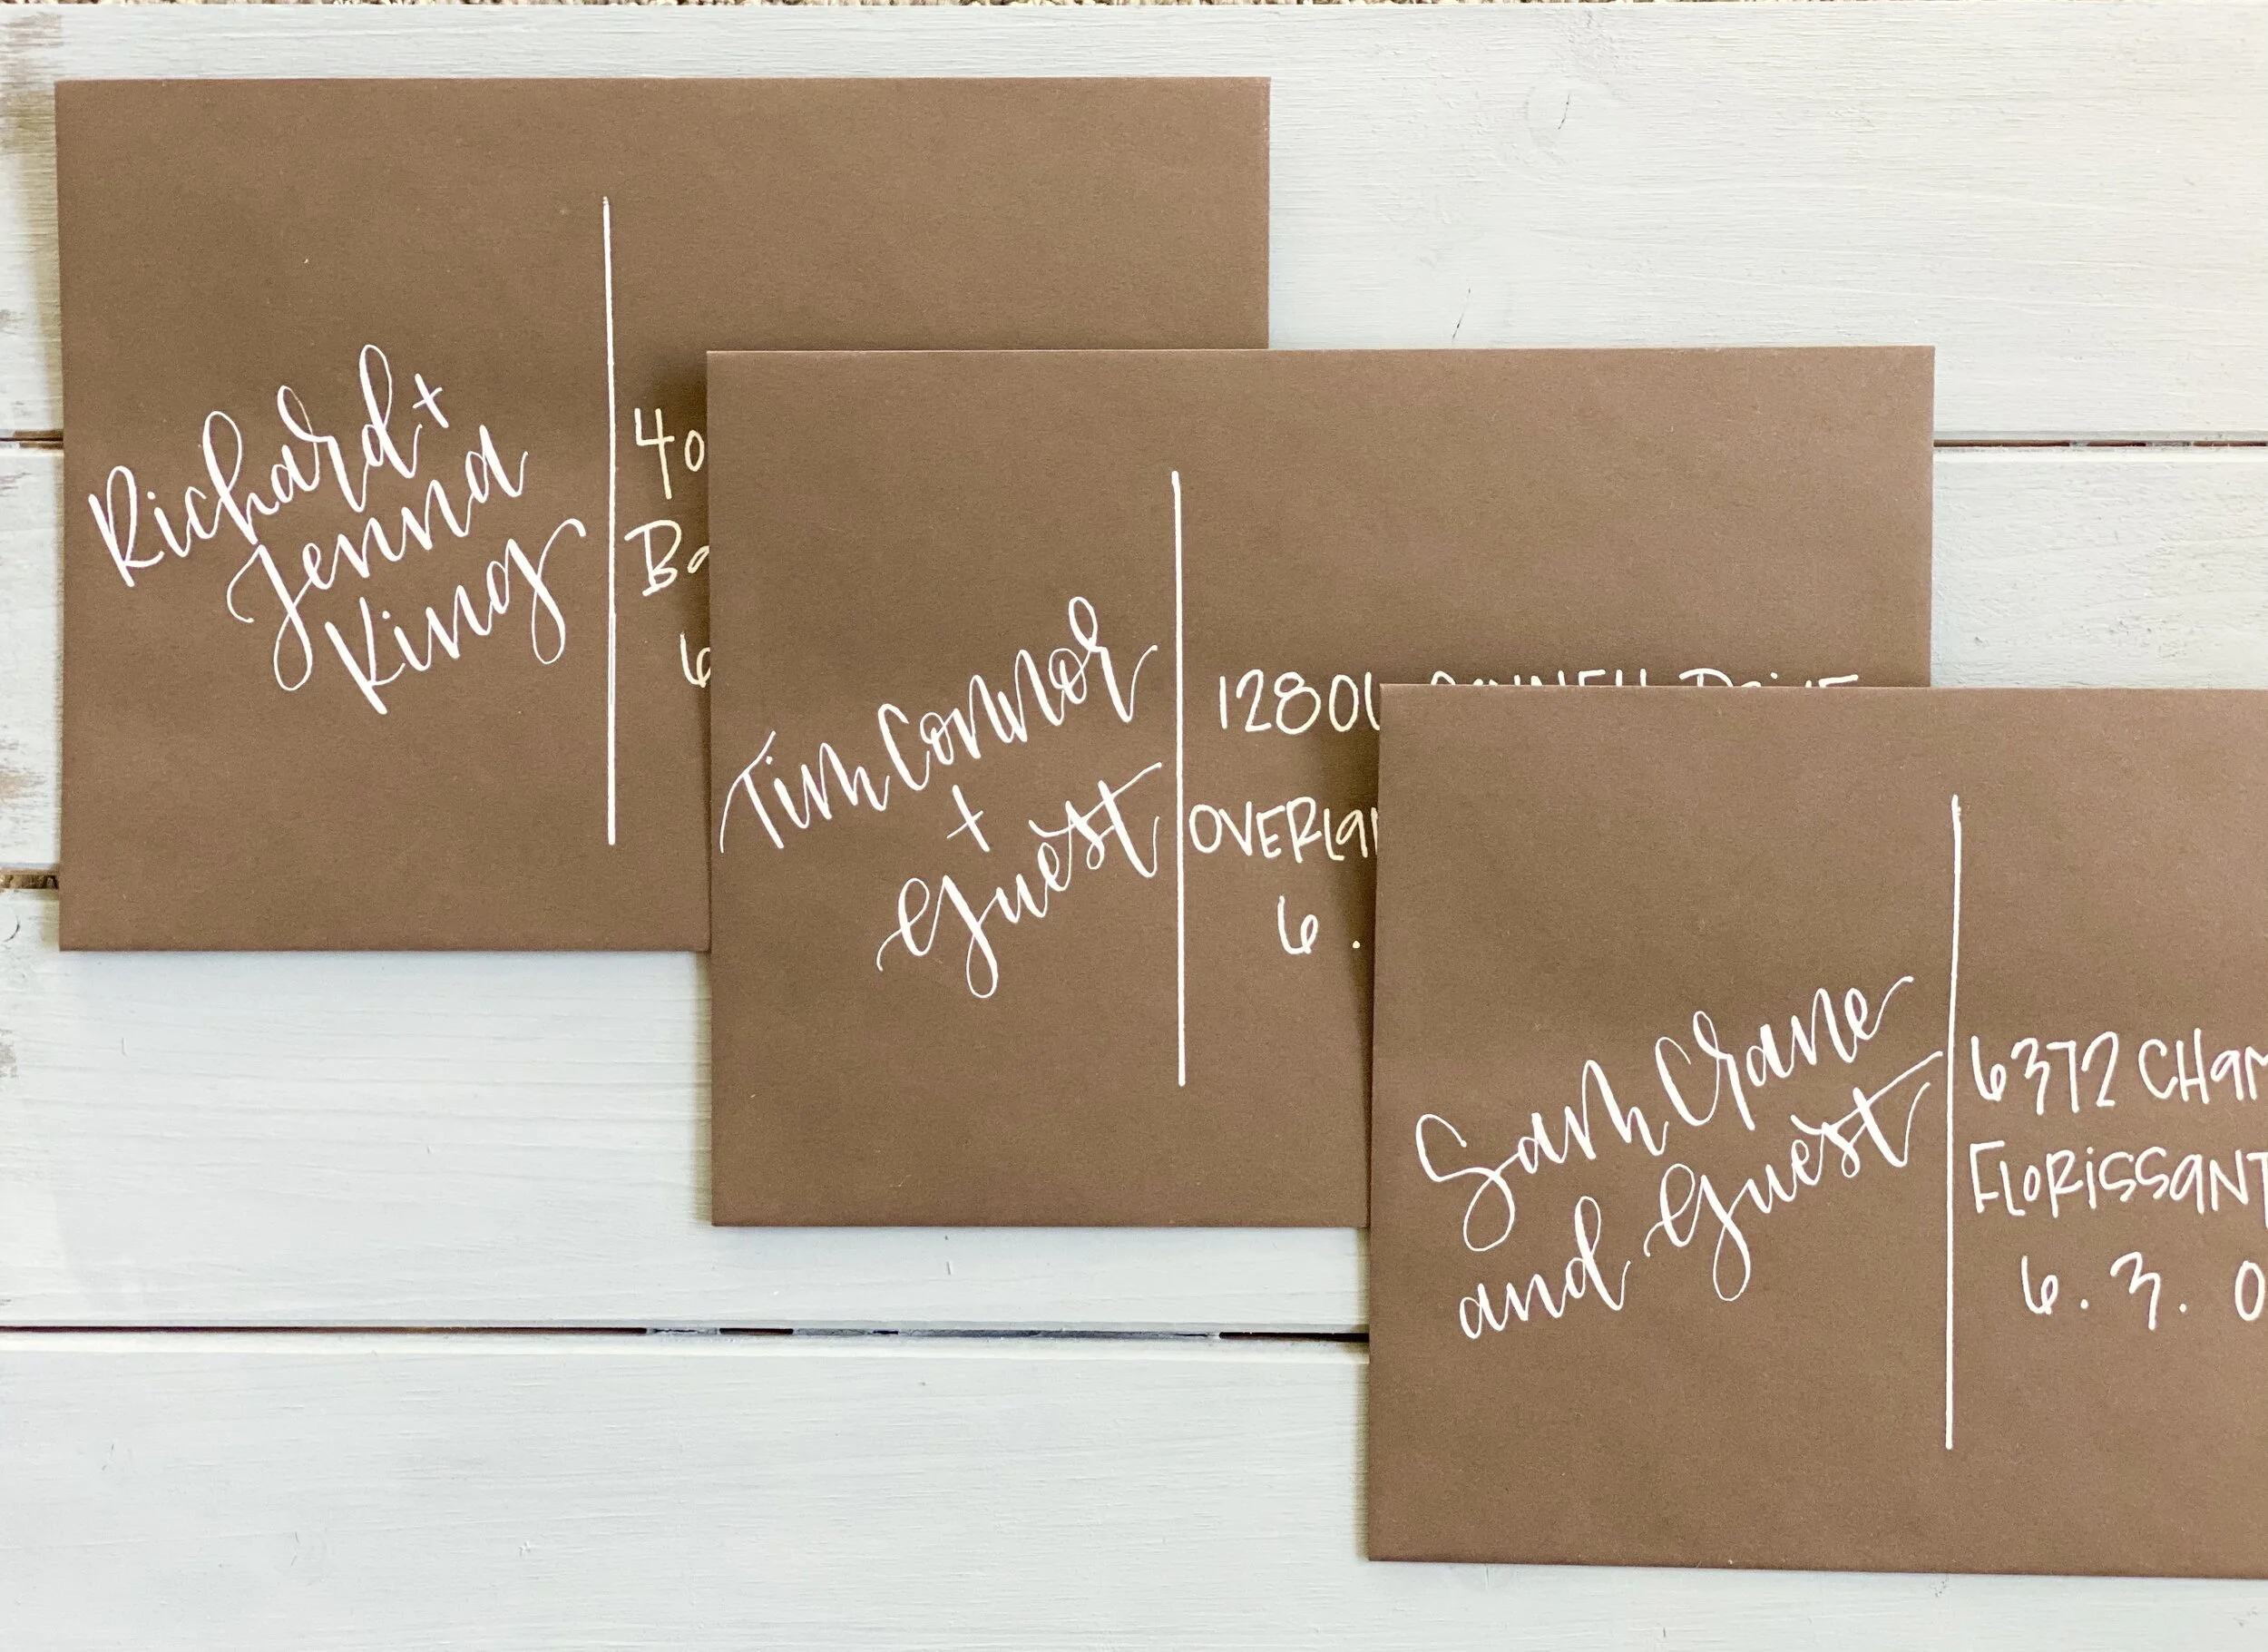 Richard +
Jenna
King
40
Ba
6
Tim Connor
+
Guest
1280
OVERLa
6 .
Sam Crane
and Guest
6372 CHam
FLORISSANT
6 . 3 . 0